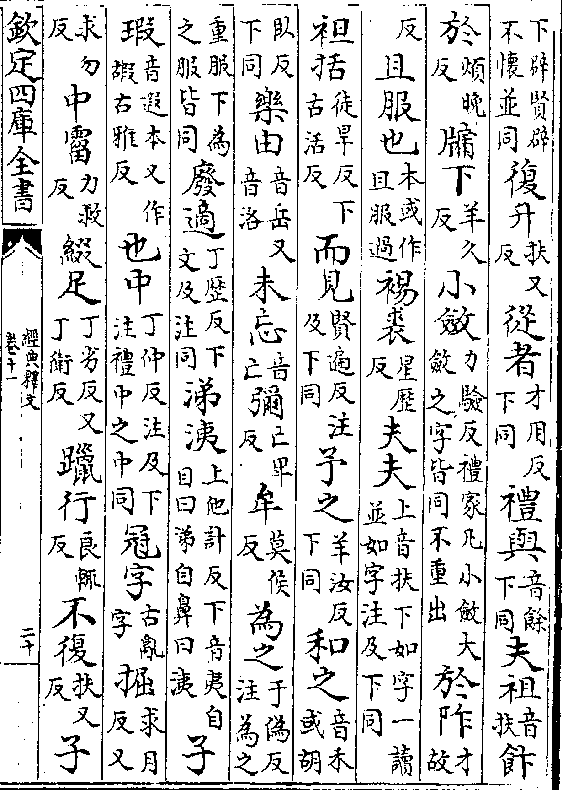 下辟賢辟不懷並同復升扶又反從者才用反下同禮與音餘下同夫祖音扶飰
煩晚反牖下羊久反小斂力驗反禮家凡小斂大斂之字皆同不重出於阼才故
反且服也本或作且服過裼裘星歴反夫夫上音扶下如字一讀並如字注及下同
袒括徒旱反下古活反而見賢遍反注及下同予之羊汝反下同和之音禾或胡
臥反下同樂由音岳又音洛未忘音亡彌亡畀反牟莫侯反為之于偽反注為之
重服下為之服皆同廢適丁歴反下文及注同涕洟上他計反下音夷自目曰涕自鼻曰洟子
瑕音遐本又作嘏古雅反也中丁仲反注及下注禮中之中同冠字古亂反字掘求月反又
求勿反中霤力救反綴足丁劣反又丁衛反躐行良輒反不復扶又反子
欽定四庫全書
經典釋文
卷十一
二十